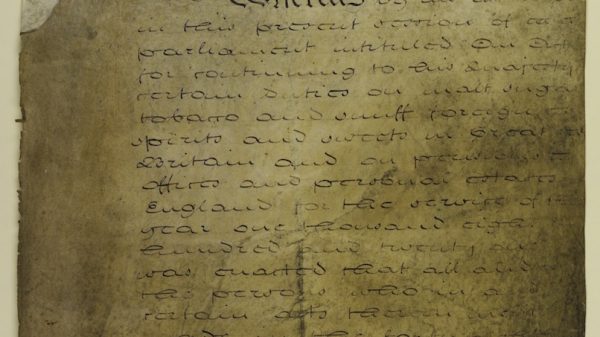 Whereas by an
in this present session of
parliament intituled An Act
for continuing to his Majesty
certain Duties on malt sugar
tobacco and snuff foreign
spirits and sweets in Great
Britain and on pensions
offices and personal estates
England for the service of
year one thousand eigh
hundred and twenty
was enacted that all and
the persons who in
certain acts therein